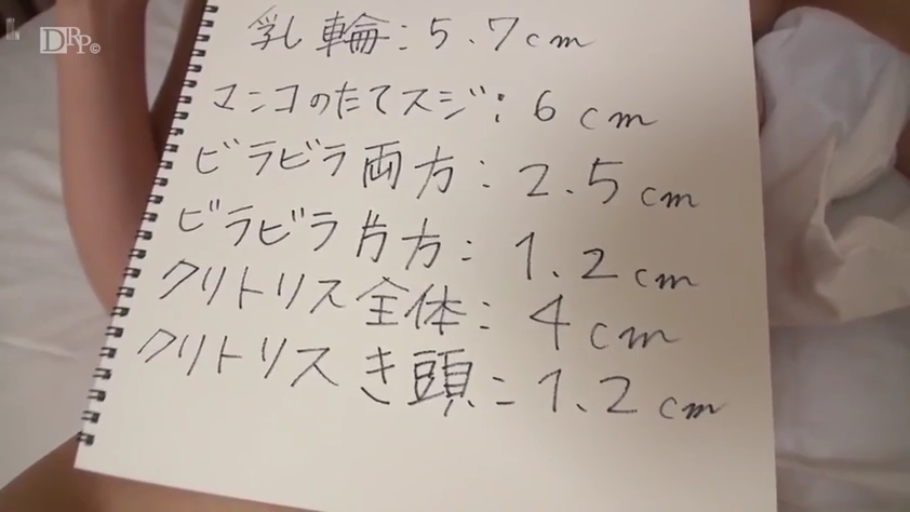 DRP©
乳輪:5.7cm
マンコのたてスジ:6cm
ビラビラ両方:2.5cm
ビラビラ片方:1.2cm
クリトリス全体:4cm
クリトリスき頭:1.2cm